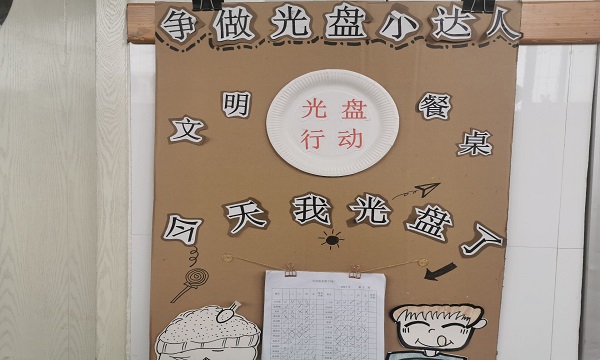 争做光盘小达人
文明
光盘
行动
餐桌
今天我光盘了